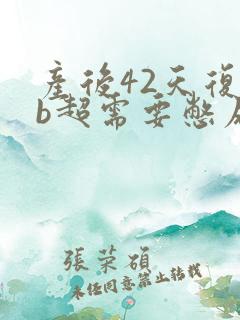 產後42天復
b超需要憋尿
張榮碩
未经同意禁止转载